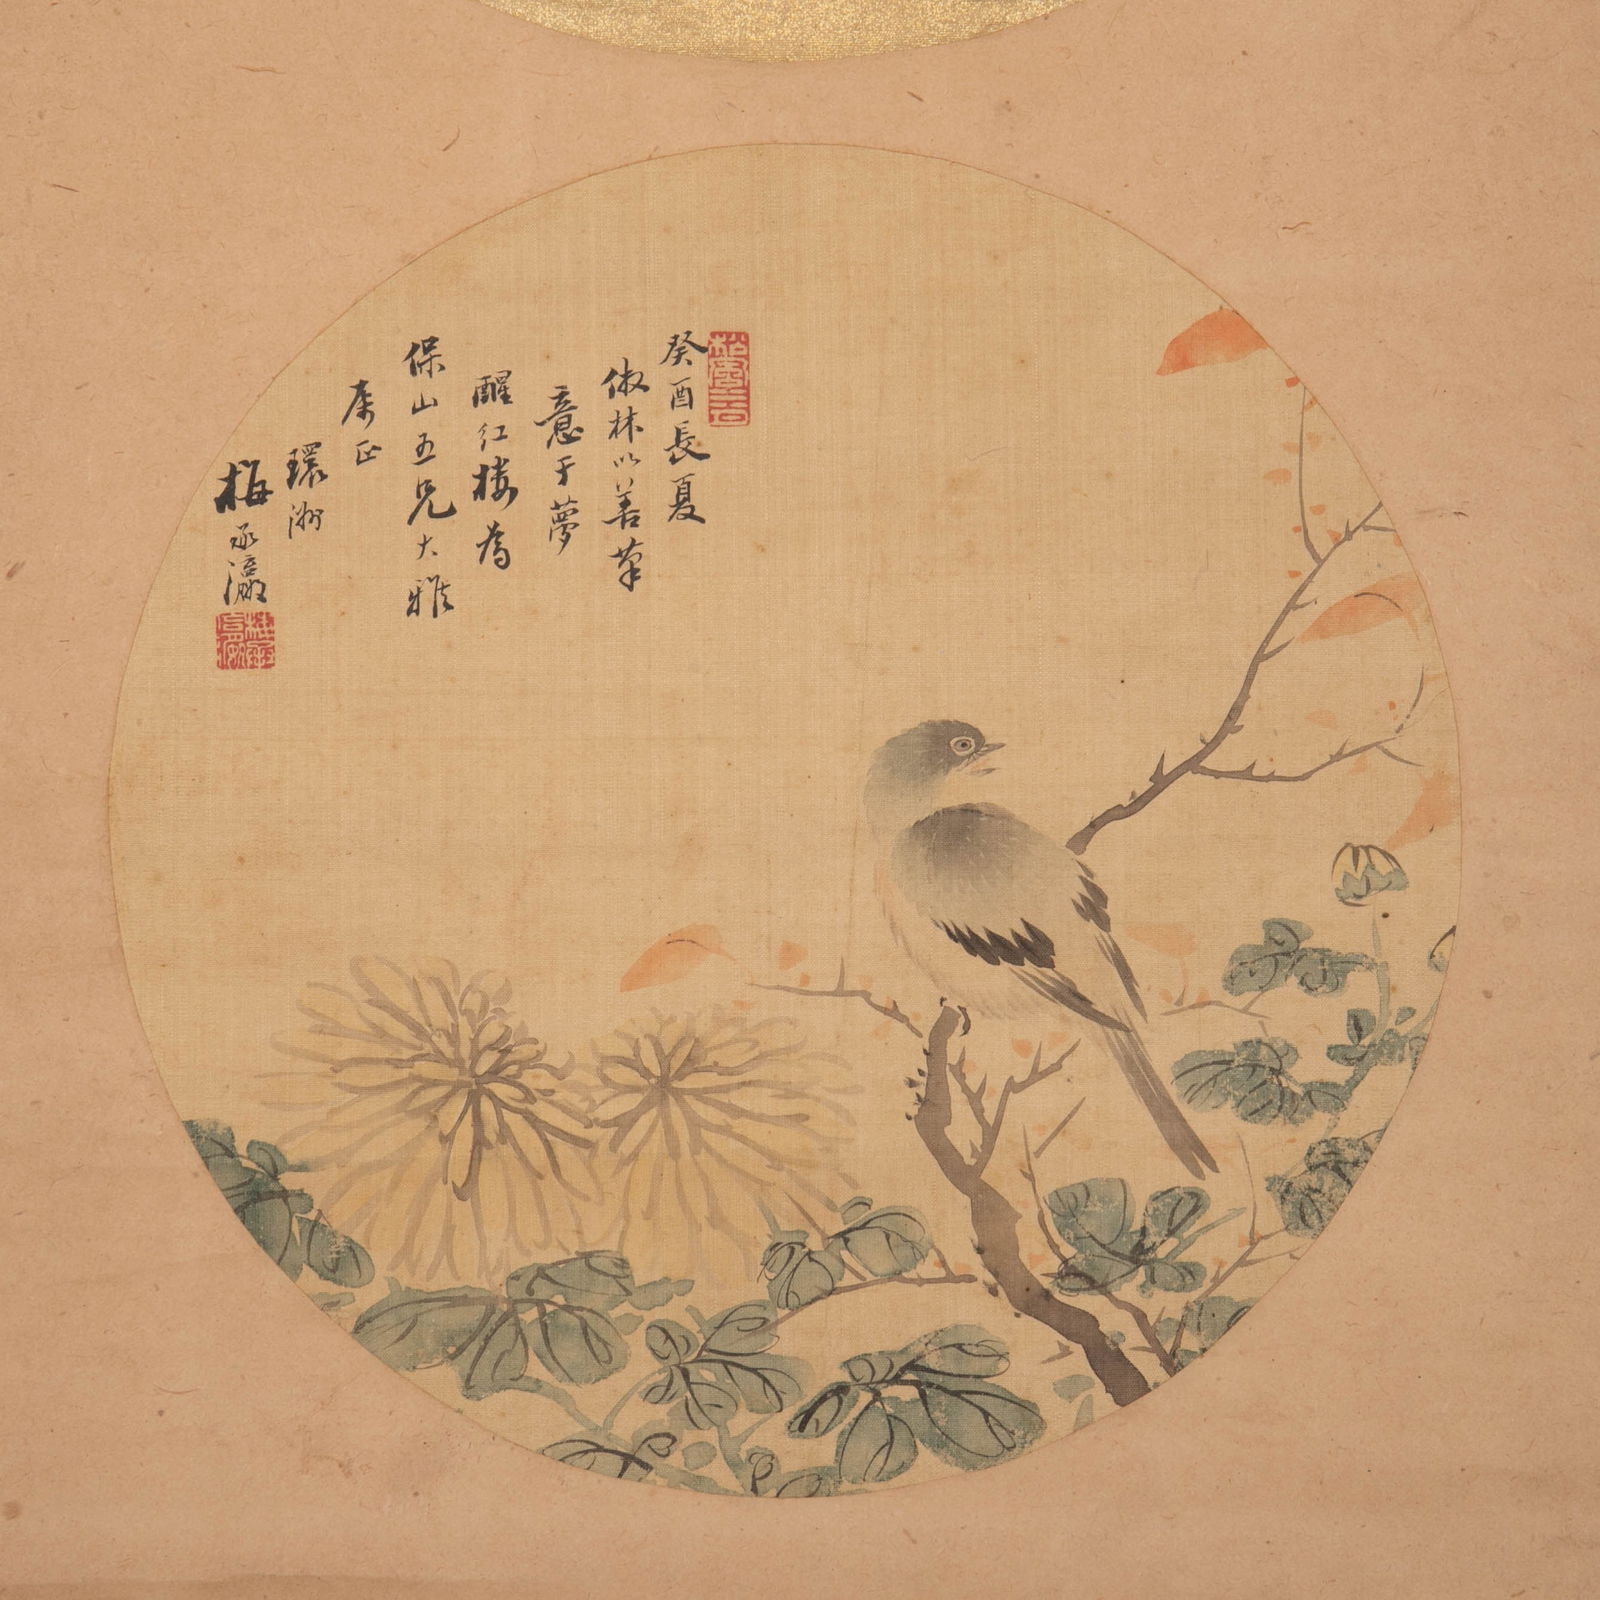 癸酉長夏
倣林以善筆
意于夢
醒紅樓爲
保山五兄大雅
環洲
梅承瀛